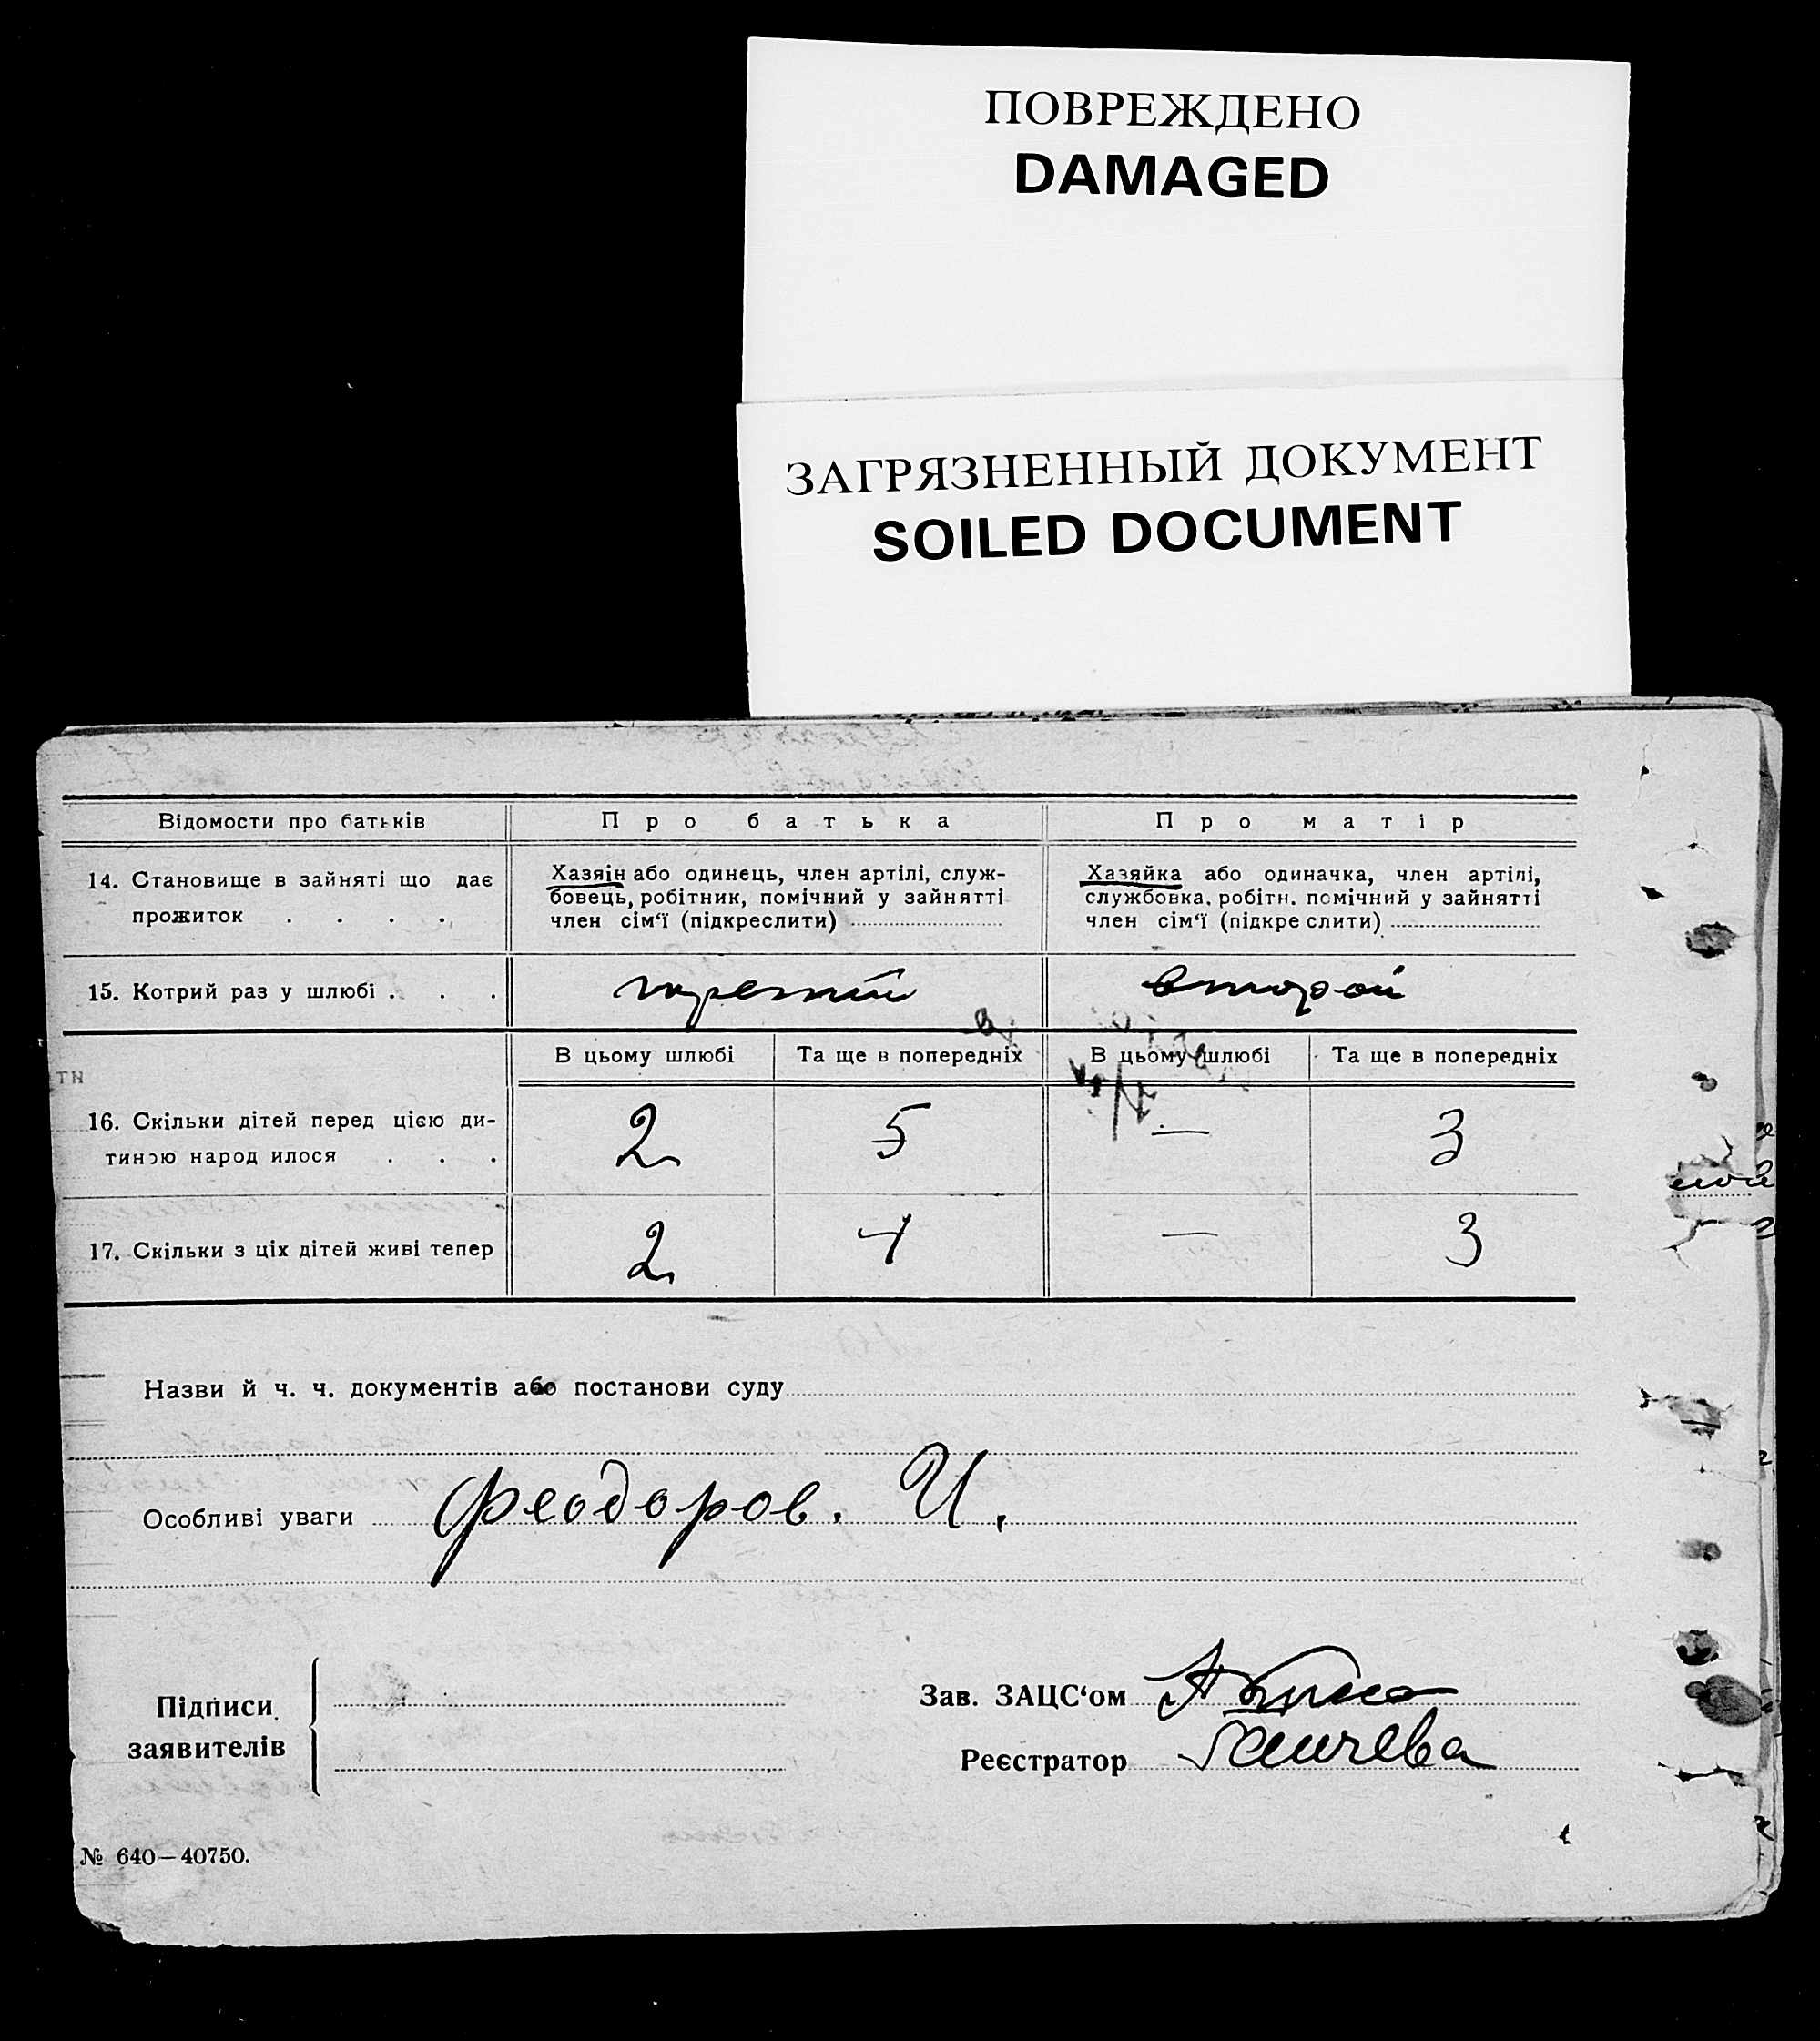 ПОВРЕЖДЕНО
DAMAGED
ЗАГРЯЗНЕННЫЙ ДОКУМЕНТ
SOILED DOCUMENT
Відомости про батьків
Про батька
Про матір
14. Становище в зайняті що дає
прожиток . . . .
Хазяін або одинець, член артілі, служ-
бовець, робітник, помічний у зайнятті
член сім‘ї (підкреслити)
Хазяйка або одиначка, член артілі,
службовка, робітн. помічний у зайнятті
член сім‘ї (підкреслити)
15. Котрий раз у шлюбі . . .
третій
второй
В цьому шлюбі
Та ще в попередніх
В цьому шлюбі
Та ще в попередніх
16. Скільки дітей перед цією ди-
тиною народилося . . .
2
5
—
3
17. Скільки з ціх дітей живі тепер
2
4
—
3
Назви й ч. ч. документів або постанови суду
Особливі уваги Феодоров. И.
Підписи
заявителів
Зав. ЗАЦС‘ом
Реєстратор
№ 640—40750.